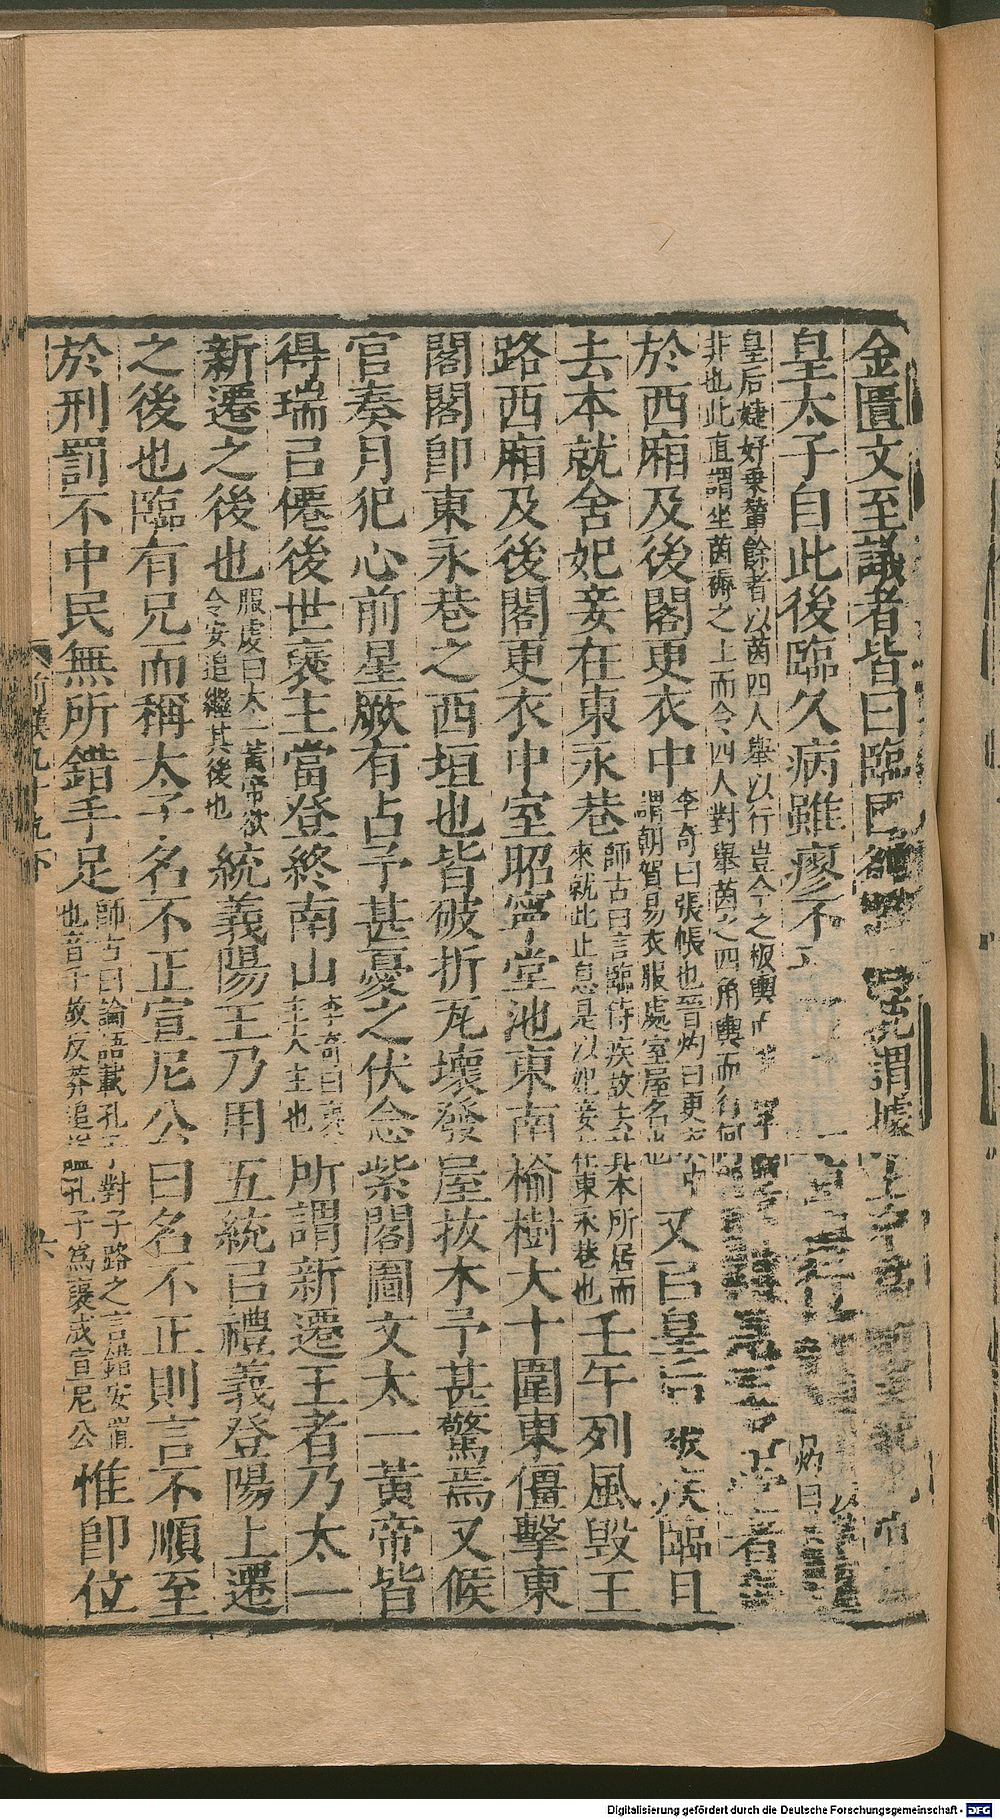 金匱文至議者皆曰臨國
謂據
皇太子自此後臨久病雖瘳不
灼曰
皇后婕妤乗輦餘者以茵四人舉以行豈今之板輿
非也此直謂坐茵褥之上而令四人對舉茵之四角輿而行何
於西廂及後閣更衣中
李奇曰張帳也晉灼曰更
謂朝賀易衣服處室屋名也
又㠯皇后
疾臨且
去本就舍妃妾在東永巷
師古曰言臨侍疾故去其本所居而
來就此止息是以妃妾在東永巷也
壬午列風毀王
路西廂及後閣更衣中室昭寧堂池東南榆樹大十圍東僵擊東
閣閣卽東永巷之西垣也皆破折瓦壞發屋拔木予甚驚焉又候
官奏月犯心前星厥有占予甚憂之伏念紫閣圖文太一黃帝皆
得瑞㠯僊後世襃主當登終南山
李奇曰襃
主大主也
所謂新遷王者乃太一
新遷之後也
服虔曰太一黃帝欲
令安追繼其後也
統義陽王乃用五統㠯禮義登陽上遷
之後也臨有兄而稱太子名不正宣尼公曰名不正則言不順至
於刑罰不中民無所錯手足
師古曰論語載孔子對子路之言錯安置
也音千故反莽追諡孔子爲襃成宣尼公
惟卽位
前漢九十九下
六
Digitalisierung gefördert durch die Deutsche Forschungsgemeinschaft - DFG